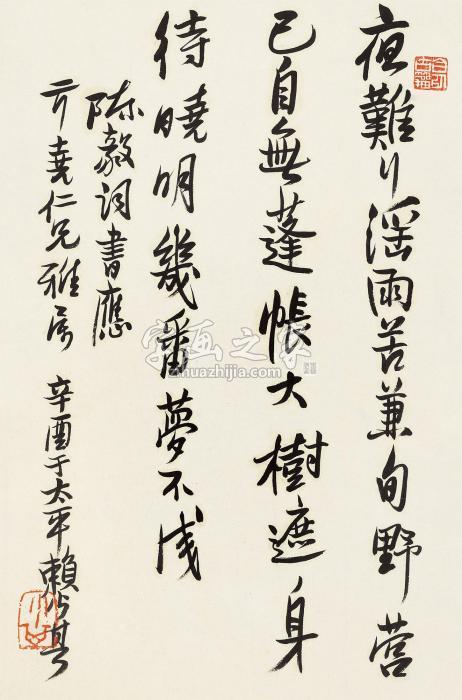 夜難行淫雨苦兼旬野營
已自無蓬帳大樹遮身
待曉明幾番夢不成
陳毅词書應
亓堯仁兄雅屬
辛酉于太平賴少其
字画之家
zihuazhijia.com